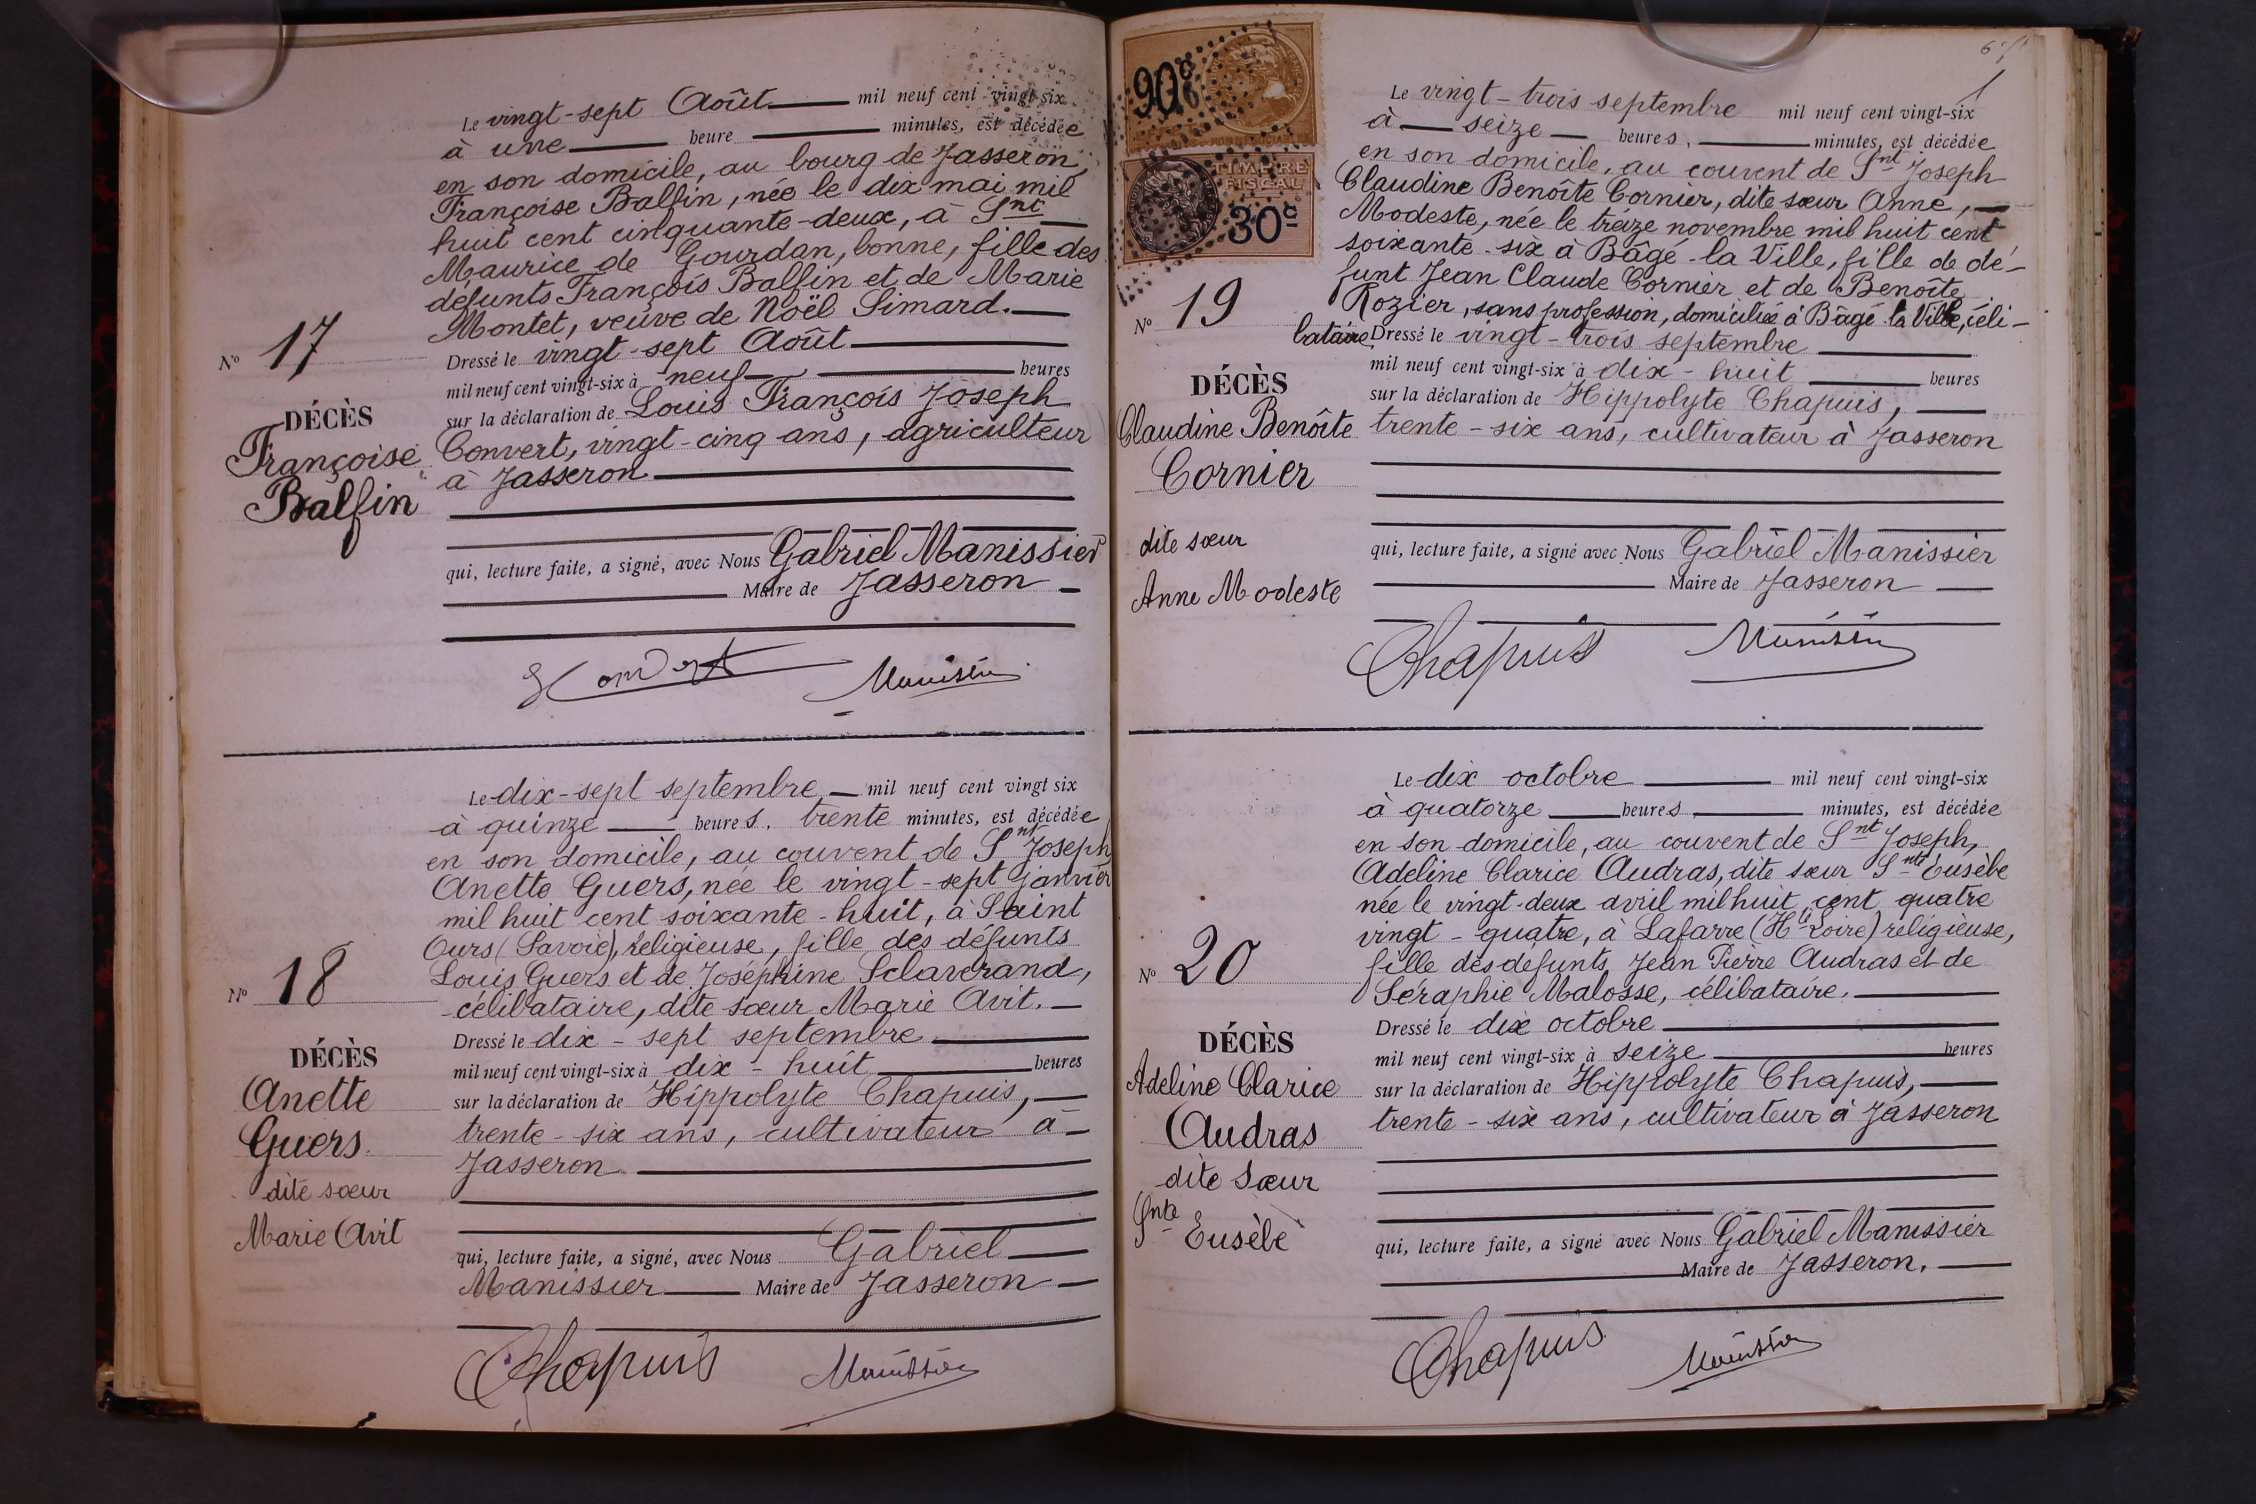 Le vingt-sept Août mil neuf cent vingt-six
à une heure minutes, est décédée
en son domicile, au bourg de Jasseron,
Françoise Balfin, née le dix mai mil
huit cent cinquante-deux, à Snt
Maurice de Gourdan, bonne, fille des
défunts François Balfin et de Marie
Montet, veuve de Noël Simard.
Dressé le vingt-sept Août
mil neuf cent vingt-six à neuf heures
sur la déclaration de Louis François Joseph
Convert, vingt-cinq ans, agriculteur
à Jasseron
qui, lecture faite, a signé, avec Nous Gabriel Manissier
Maire de Jasseron
N° 17
DÉCÈS
Françoise
Balfin
Manissier
Le dix-sept septembre mil neuf cent vingt six
à quinze heures, trente minutes, est décédée
en son domicile, au couvent de Snt Joseph
Anette Guers, née le vingt-sept janvier
mil huit cent soixante-huit, à Saint
Ours (Savoie), religieuse, fille des défunts
Louis Guers et de Joséphine Sclaverand,
célibataire, dite sœur Marie Avit.
Dressé le dix-sept septembre
mil neuf cent vingt-six à dix-huit heures
sur la déclaration de Hippolyte Chapuis,
trente-six ans, cultivateur à
Jasseron
qui, lecture faite, a signé, avec Nous Gabriel
Manissier Maire de Jasseron
N° 18
DÉCÈS
Anette
Guers
dite sœur
Marie Avit
Chapuis Manissier
90c
TIMBRE
FISCAL
30c
Le vingt-trois septembre mil neuf cent vingt-six
à seize heures, minutes, est décédée
en son domicile, au couvent de Snt Joseph
Claudine Benoîte Cornier, dite sœur Anne,
Modeste, née le treize novembre mil huit cent
soixante-six à Bâgé-la Ville, fille de dé-
funt Jean Claude Cornier et de Benoîte
Rozier, sans profession, domiciliée à Bâgé la Ville, céli-
bataire. Dressé le vingt-trois septembre
mil neuf cent vingt-six à dix-huit heures
sur la déclaration de Hippolyte Chapuis,
trente-six ans, cultivateur à Jasseron
qui, lecture faite, a signé avec Nous Gabriel Manissier
Maire de Jasseron
N° 19
DÉCÈS
Claudine Benoîte
Cornier
dite sœur
Anne Modeste
Chapuis Manissier
Le dix octobre mil neuf cent vingt-six
à quatorze heures minutes, est décédée
en son domicile, au couvent de Snt Joseph,
Adeline Clarice Audras, dite sœur Snte Eusèbe
née le vingt-deux avril mil huit cent quatre
vingt-quatre, à Lafarre (Hte Loire) religieuse,
fille des défunts Jean Pierre Audras et de
Séraphie Malosse, célibataire.
Dressé le dix octobre
mil neuf cent vingt-six à seize heures
sur la déclaration de Hippolyte Chapuis,
trente-six ans, cultivateur à Jasseron
qui, lecture faite, a signé avec Nous Gabriel Manissier
Maire de Jasseron.
N° 20
DÉCÈS
Adeline Clarice
Audras
dite Sœur
Snte Eusèbe
Chapuis Manissier